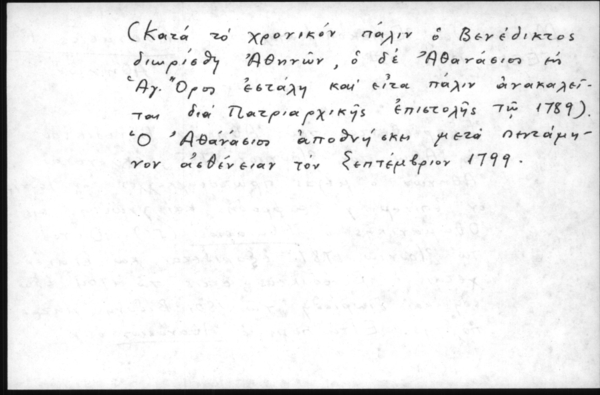 (Κατά τό χρονικόν πάλιν ὁ Βενέδικτος
διωρίσθη Ἀθηνῶν, ὁ δέ Ἀθανάσιος εἰς
Ἁγ. Ὄρος ἐστάλη καί εἶτα πάλιν ἀνακαλεῖ-
ται διά Πατριαρχικῆς ἐπιστολῆς τῷ 1789).
Ὁ Ἀθανάσιος ἀποθνήσκει μετά πεντάμη-
νον ἀσθένειαν τόν Σεπτέμβριον 1799.